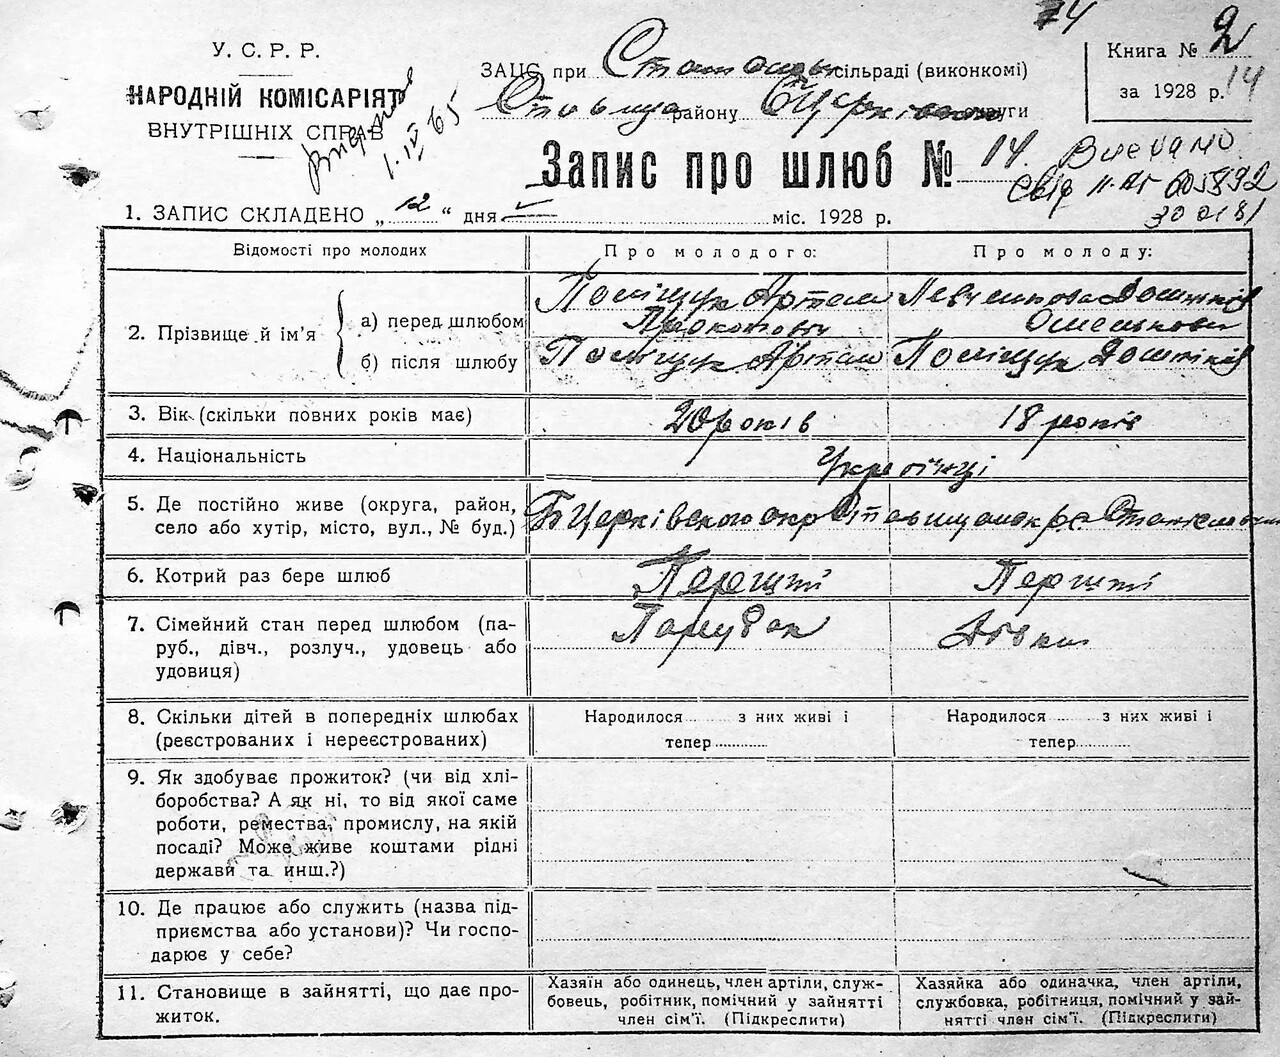 74
У. С. Р. Р.
НАРОДНІЙ КОМІСАРІЯТ
ВНУТРІШНІХ СПРАВ
1.IV 65
ЗАЦС при сільраді (виконкомі)
району округи
Книга № 2
за 1928 р. 14
Запис про шлюб № 14.
Видано
30 01 81
1. ЗАПИС СКЛАДЕНО „ 12 “ дня V міс. 1928 р.
Відомості про молодих
Про молодого:
Про молоду:
2. Прізвище й ім’я
а) перед шлюбом
Поліщук Артем
Прокопович
б) після шлюбу
Поліщук Артем
Поліщук
3. Вік (скільки повних років має)
20 років
18 років
4. Національність
Українці
5. Де постійно живе (округа, район,
село або хутір, місто, вул., № буд.)
Б Церківського окр
6. Котрий раз бере шлюб
Перший
Перший
7. Сімейний стан перед шлюбом (па-
руб., дівч., розлуч., удовець або
удовиця)
Парубок
Дівка
8. Скільки дітей в попередніх шлюбах
(реєстрованих і нереєстрованих)
Народилося з них живі і
тепер
Народилося з них живі і
тепер
9. Як здобуває прожиток? (чи від хлі-
боробства? А як ні, то від якої саме
роботи, ремества, промислу, на якій
посаді? Може живе коштами рідні
держави та инщ.?)
10. Де працює або служить (назва під-
приємства або установи)? Чи госпо-
дарює у себе?
11. Становище в зайнятті, що дає про-
житок.
Хазяїн або одинець, член артіли, служ-
бовець, робітник, помічний у зайнятті
член сім’ї. (Підкреслити)
Хазяйка або одиначка, член артіли,
службовка, робітниця, помічний у зай-
нятті член сім’ї. (Підкреслити)